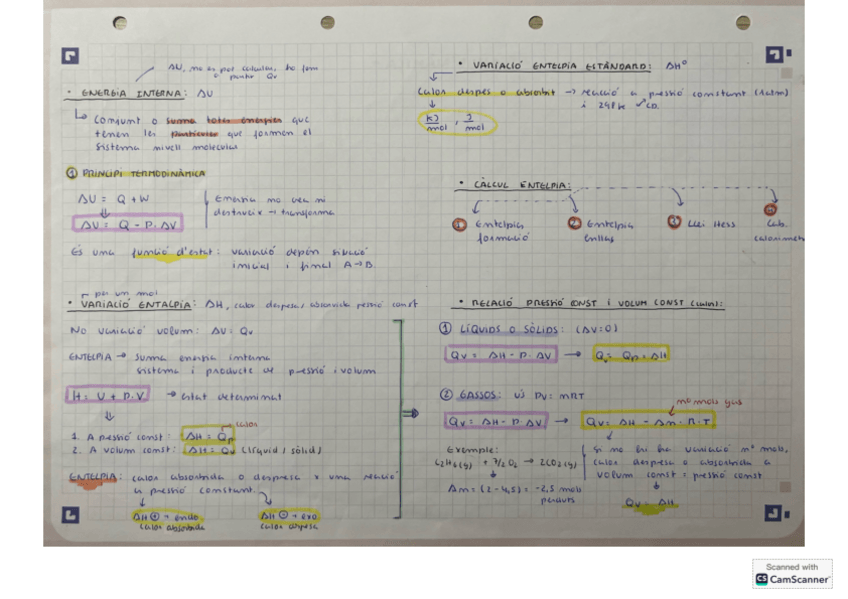 ΔU, no es pot calcular, ho fem
· ENERGIA INTERNA: ΔU
Conjunt o suma totes energies que
tenen les partícules que formen el
sistema nivell molecular
① PRINCIPI TERMODINÀMICA
ΔU = Q + W
ΔU = Q - P. ΔV
Energia no crea ni
destrueix → transforma
És una funció d'estat: variació depèn situació
inicial i final A→B.
per un mol
· VARIACIÓ ENTALPIA: ΔH, calor despresa/absorvida pressió const
No variació volum: ΔU: Qv
ENTELPIA → suma energia interna
sistema i producte de pressió i volum
H = U + P.V → estat determinat
calor
1. A pressió const: ΔH = Qp
2. A volum const: ΔH = Qv (líquid / sòlid)
ENTELPIA: calor absorbida o despresa x una reacció
a pressió constant.
ΔH ⊕ → endo
calor absorbida
ΔH ⊖ → exo
calor despesa
· VARIACIÓ ENTELPIA ESTÀNDARD: ΔHº
Calor després o absorbit → reacció a pressió constant (1atm)
i 298k
KJ/mol , J/mol
· CÀLCUL ENTELPIA:
① Entelpia
formació
② Entelpia
enllaç
③ Llei Hess
④ Lab.
calorimetr
· RELACIÓ PRESSIÓ CONST I VOLUM CONST (calor):
① LÍQUIDS O SÒLIDS: (ΔV=0)
Qv = ΔH - P. ΔV → Qv = Qp = ΔH
② GASSOS: ús PV = nRT
no mols gas
Qv = ΔH - P ΔV → Qv = ΔH - Δn · R · T
Exemple:
C2H6(g) + 7/2 O2 → 2CO2(g)
Δn = (2 - 4,5) = -2,5 mols
perduts
Si no hi ha variació nº mols,
calor despesa o absorbida a
volum const = pressió const
Qv = ΔH
Scanned with
CS CamScanner